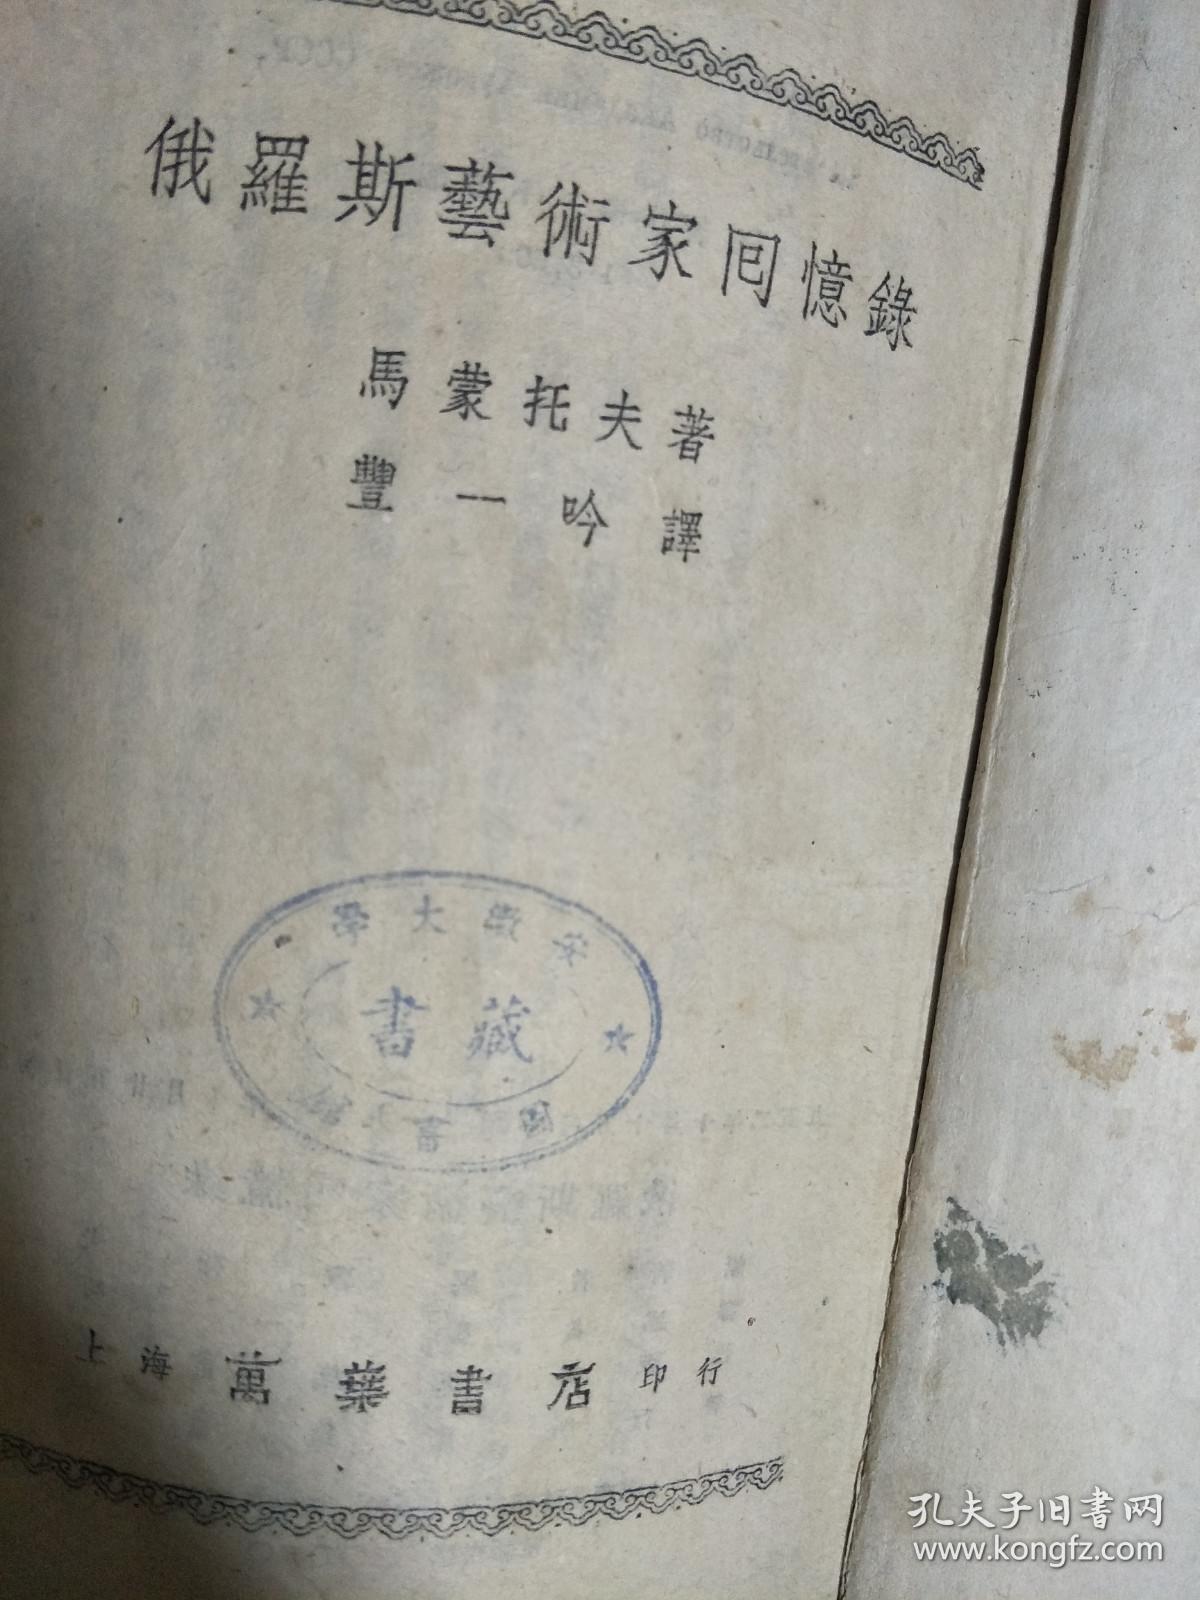 俄羅斯藝術家囘憶錄
馬蒙托夫著
豐一吟譯
安徽大學
藏書
圖書館
上海萬葉書店印行
孔夫子旧书网
www.kongfz.com